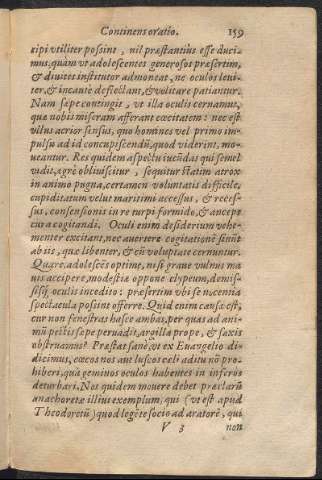 Continens oratio. 159
xipi vtiliter possint, nil præstantius esse duci-
mus, quàm vt adolescentes generosos præsertim,
& diuites institutor admoneat, ne oculos leui-
ter, & incautè deflectant, & volitare patiantur.
Nam sæpe contingit, vt illa oculis cernamus,
quæ nobis miseram afferant cœcitatem: nec est
vllus acrior sensus, quo homines vel primo im-
pulsu ad id concupiscendū, quod viderint, mo-
ueantur. Res quidem aspectu iucūdas qui semel
vidit, ægrè obliuiscitur, sequitur statim atrox
in animo pugna, certamen voluntatis difficile,
cupiditatum velut maritimi accessus, & reces-
sus, consensionis in re turpi formido, & anceps
cura cogitandi. Oculi enim desiderium vehe-
menter excitant, nec auertere cogitationē sinūt
ab iis, quæ libenter, & cū voluptate cernuntur.
Quare, adolescēs optime, ni sè graue vulnus ma
uis accipere, modestiæ oppone clypeum, demis-
sisq́ oculis incedito: præsertim vbi se
spectacula possint offerre. Quid enim causæ est,
cur non fenestras hasce ambas, per quas ad ani-
mū pestis sæpe peruadit, argilla prope, & saxis
obstruamus? Præstat sanè, vt ex Euangelio di-
dicimus, cœcos aut luscos cœli aditu nō pro-
hiberi, quā geminos oculos habentes in inferos
deturbari. Nos quidem mouere debet præclarū
anachoretæ illius exemplum, qui (vt est apud
Theodoretū) quod legēte socio ad aratorē, qui
V 3 non